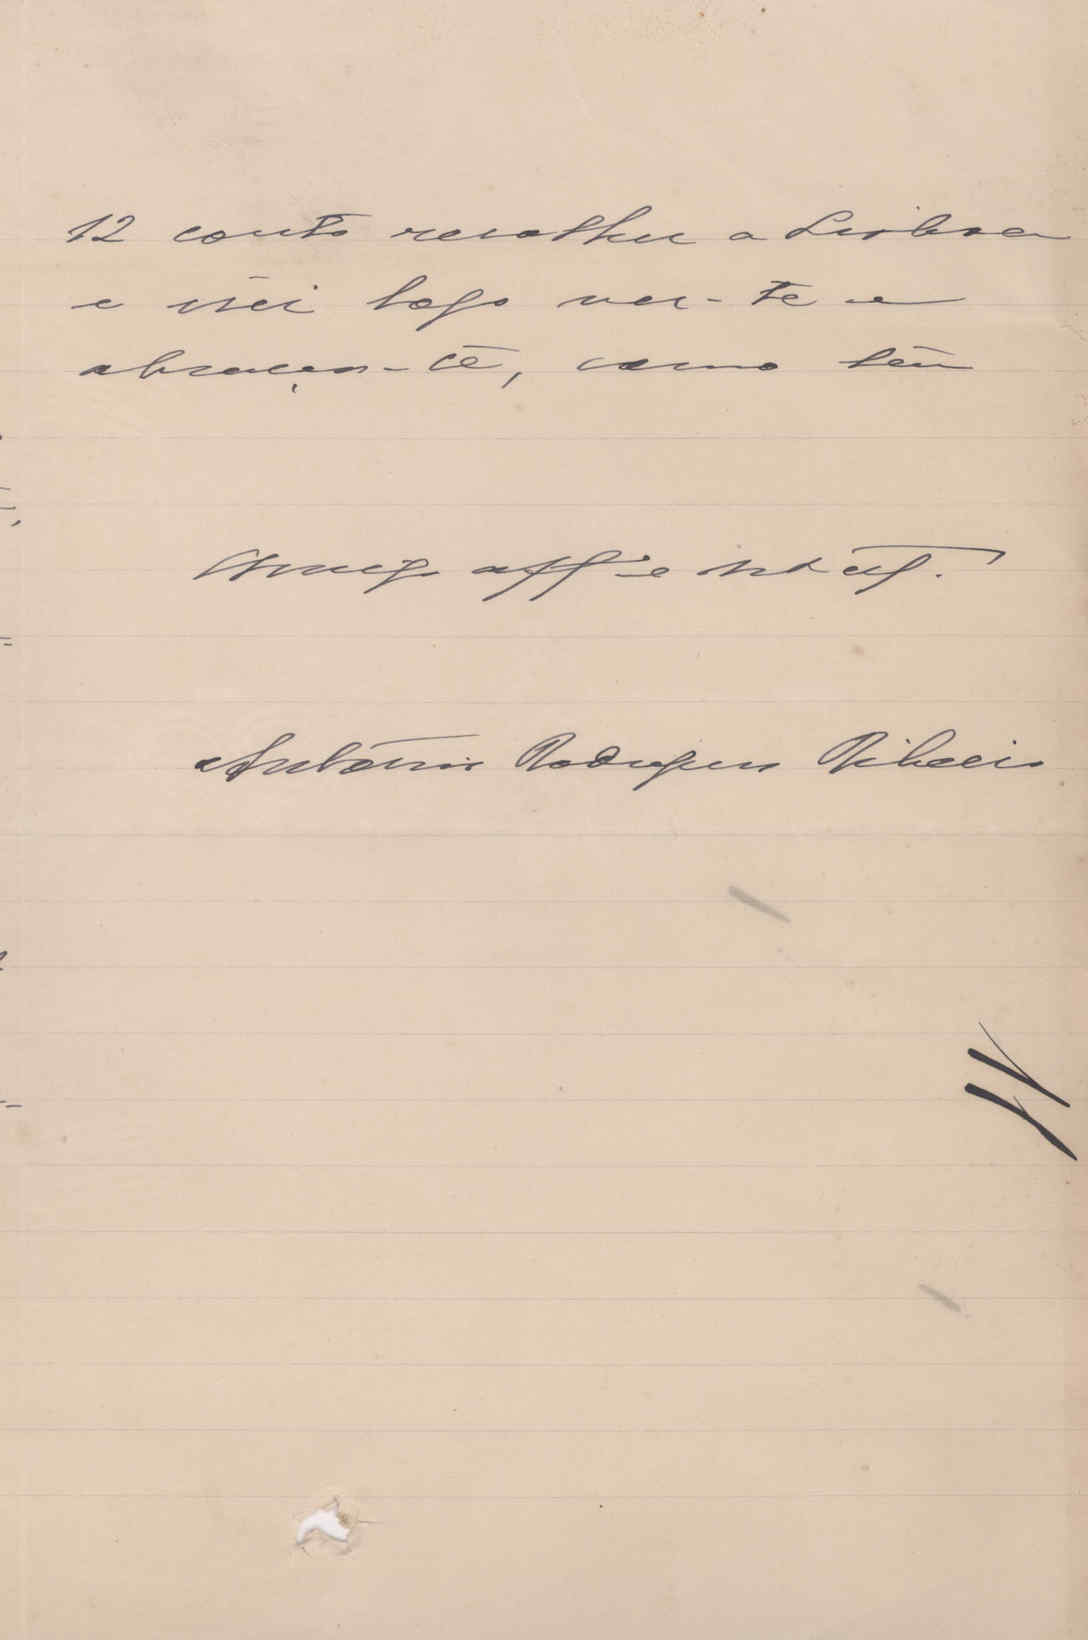 12 conto recolher a Lisboa
e irei logo ver-te e
abraçar-te, como teu
Amigo aff.º e
António Rodrigues Ribeiro